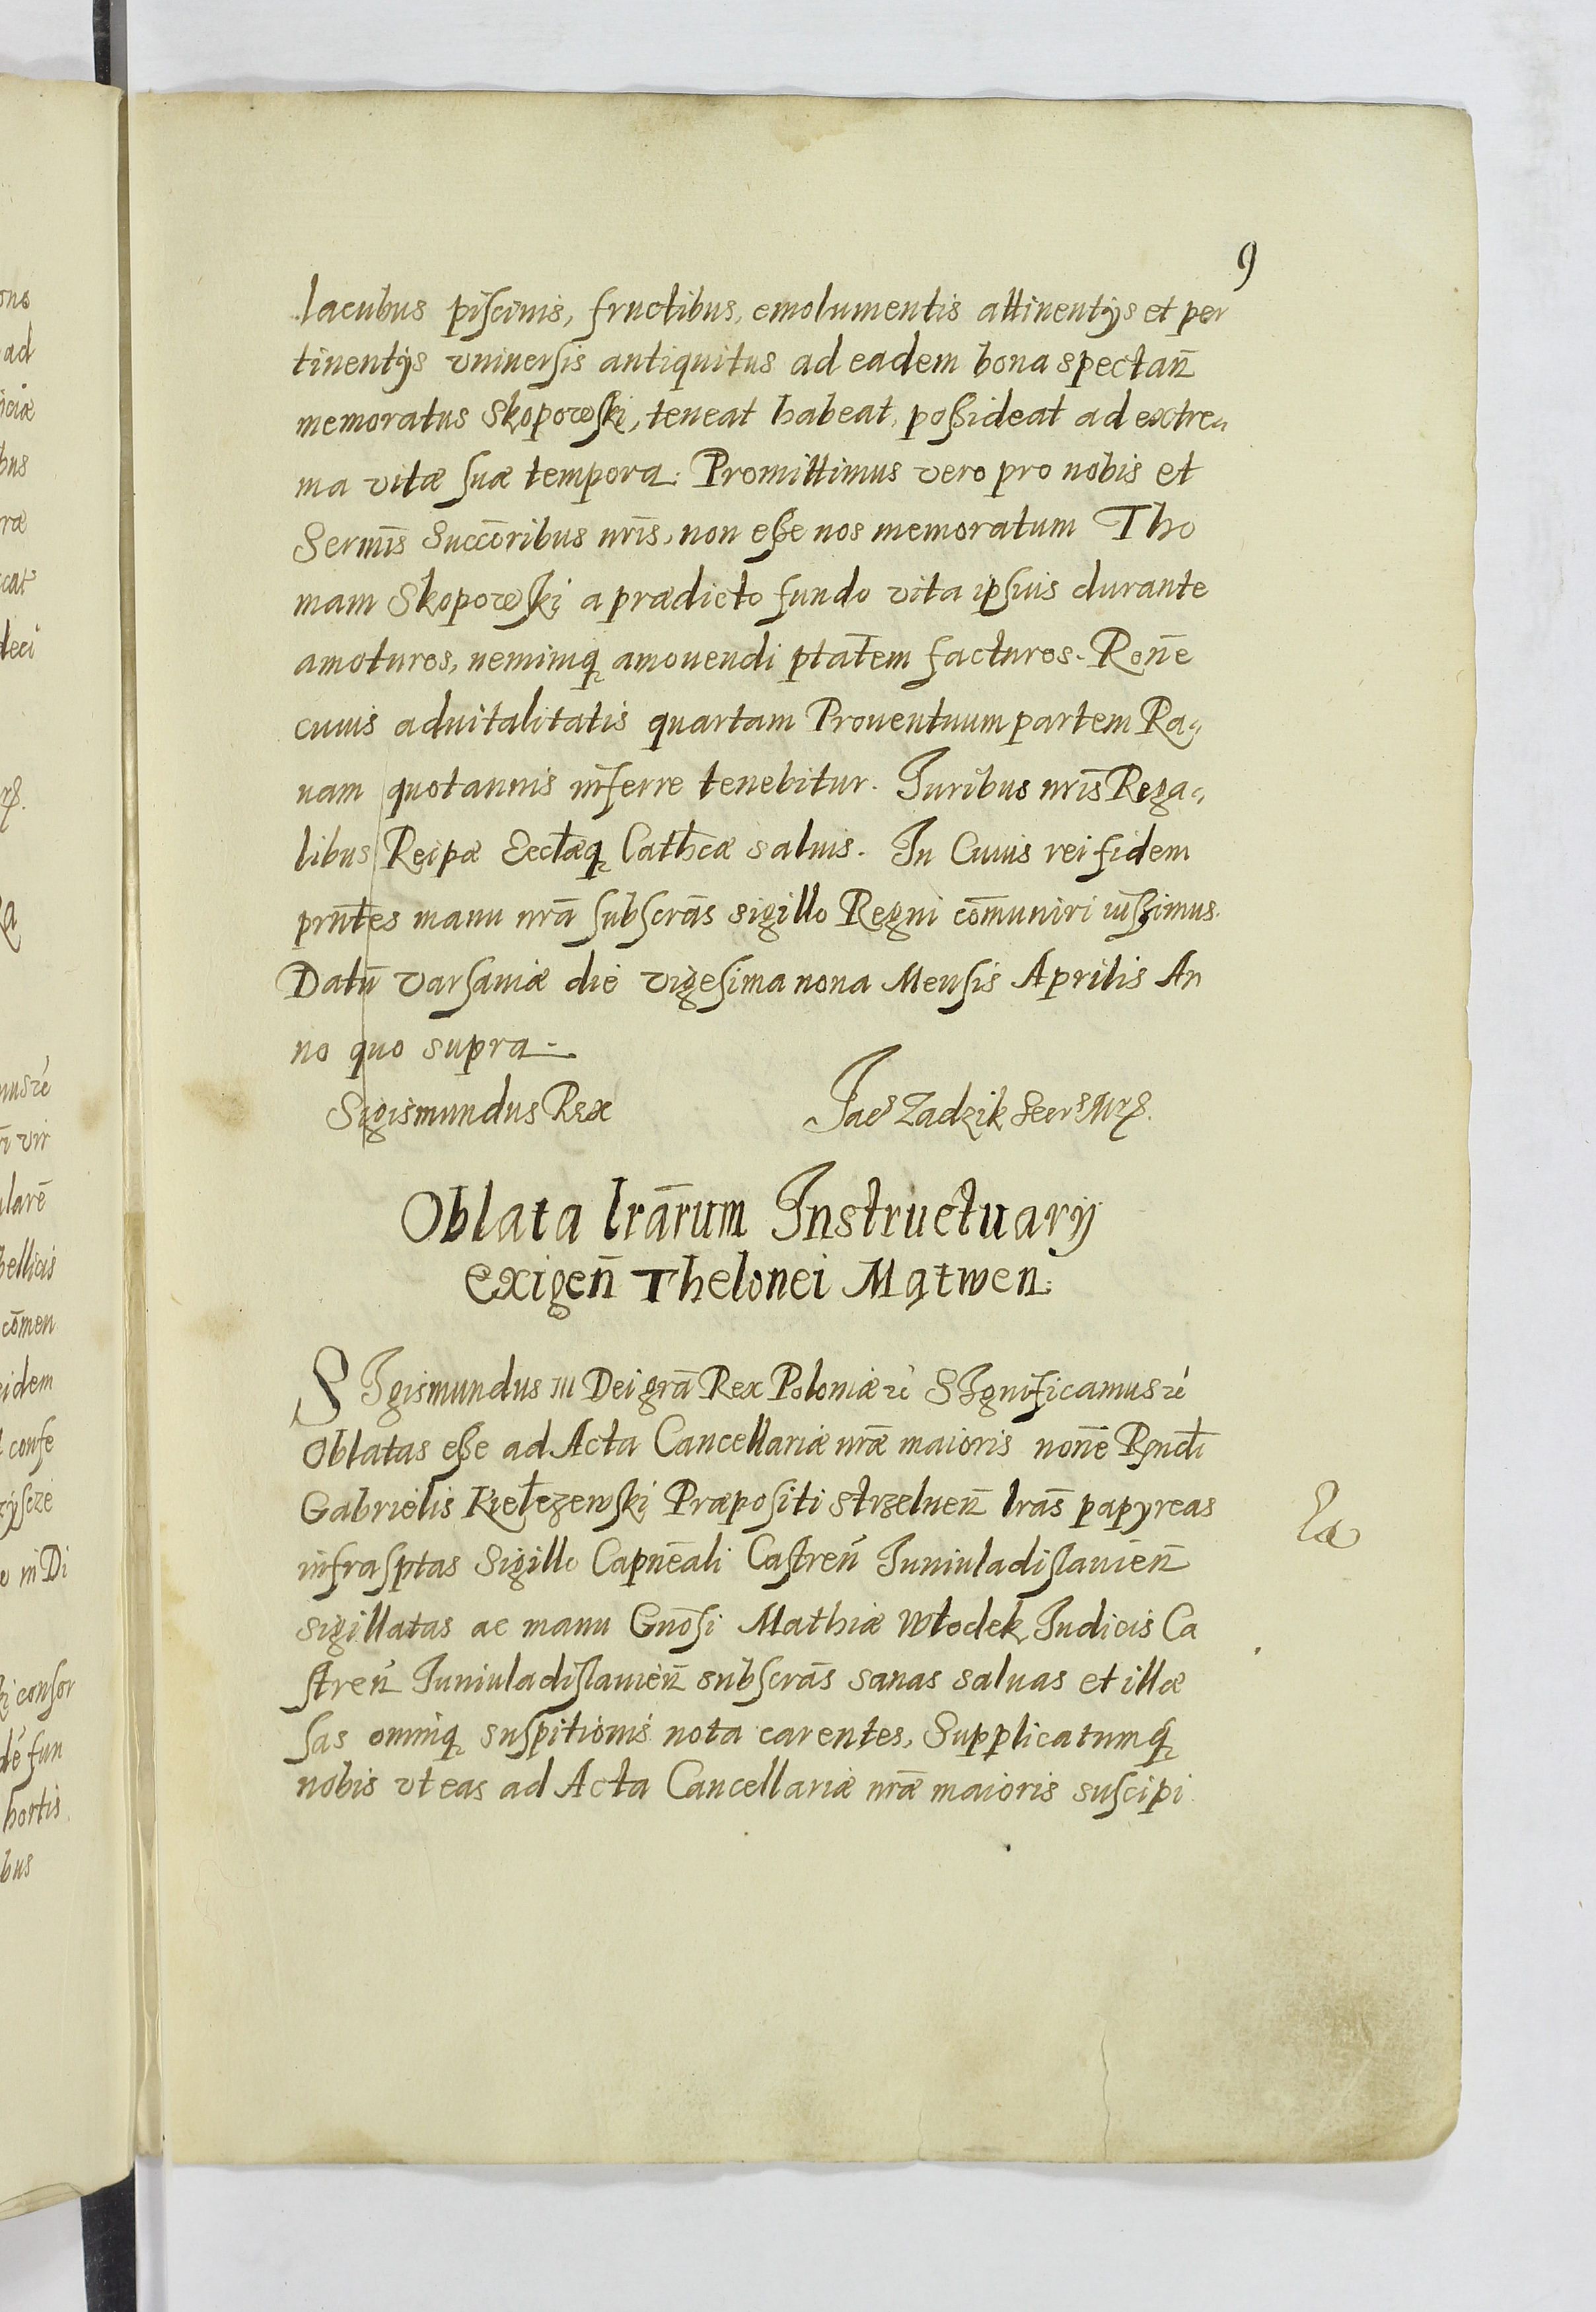 9
lacubus piscinis, fructibus, emolumentis attinentijs et per
tinentijs vniuersis antiquitus ad eadem bona spectan̄
memoratus Skoporewski, teneat habeat, possideat ad extre„
ma vitæ suæ tempora. Promittimus vero pro nobis et
Sermīs Succōribus nrīs, non esse nos memoratum Tho
mam Skoporewski a prædicto fundo vita ipsius durante
amoturos, neminiq̨ amouendi ptātem facturos. Ronē
cuius aduitalitatis quartam Prouentuum partem Ra„
uam quotannis inferre tenebitur. Juribus nrīs Rega„
libus Reipæ Eccłæq̨ Cathcæ saluis. In Cuius rei fidem
prntēs manu nrā subscrās sigillo Regni cōmuniri iussimus.
Datū varsauiæ die vigesima nona Mensis Aprilis An
no quo supra.
Sigismundus Rex
Jac Zadzik Secr
Oblata lrārum Instructuarij
exigen̄ Thelonei Mątwen.
SIgismundus III Dei grā Rex Poloniæ rć SIgnificamus rć
Oblatas esse ad Acta Cancellariæ nrǣ maioris noīe Rndī
Gabrielis Kiełczewski Præpositi strzelnen̄ lrās papyreas
infrasptas Sigillo Capneāli Castren̄ Juniuladislauien̄
sigillatas ac manu Gnōsi Mathiæ Włodek Judicis Ca
stren̄ Juniuladislauien̄ subscrās sanas saluas et illæ
sas omniq̨ suspitionis nota carentes, Supplicatumq̨
nobis vt eas ad Acta Cancellariæ nrǣ maioris suscipi